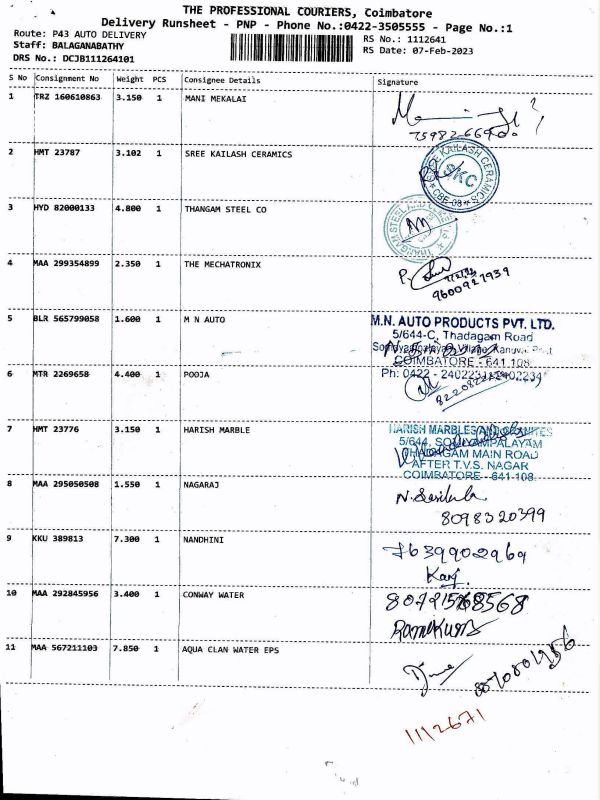 THE PROFESSIONAL COURIERS, Coimbatore
Delivery Runsheet - PNP - Phone No.:0422-3505555 - Page No.:1
Route: P43 AUTO DELIVERY
RS No.: 1112641
Staff: BALAGANABATHY
RS Date: 07-Feb-2023
DRS No.: DCJB111264101
S No Consignment No Weight PCS Consignee Details Signature
1 TRZ 160610863 3.150 1 MANI MEKALAI
2 HMT 23787 3.102 1 SREE KAILASH CERAMICS
SREE KAILASH CERAMICS
SKC
CBE-08
3 HYD 82000133 4.800 1 THANGAM STEEL CO
4 MAA 299354899 2.350 1 THE MECHATRONIX
9600927939
5 BLR 565799058 1.600 1 M N AUTO
M.N. AUTO PRODUCTS PVT. LTD.
5/644-C, Thadagam Road
COIMBATORE - 641 108
Ph: 0422 - 2402231
6 MTR 2269658 4.400 1 POOJA
7 HMT 23776 3.150 1 HARISH MARBLE
HARISH MARBLES
5/644, SOMAYAMPALAYAM
THADAGAM MAIN ROAD
AFTER T.V.S. NAGAR
COIMBATORE - 641-108
8 MAA 295050508 1.550 1 NAGARAJ
8098320399
9 KKU 389813 7.300 1 NANDHINI
7639902969
10 MAA 292845956 3.400 1 CONWAY WATER
11 MAA 567211103 7.850 1 AQUA CLAN WATER EPS
1112671